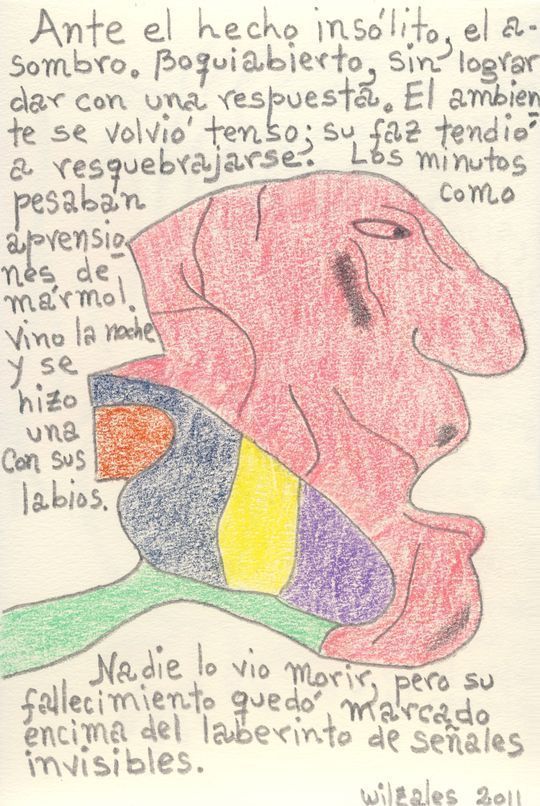 Ante el hecho insólito, el a-
sombro. Boquiabierto, sin lograr
dar con una respuesta. El ambien
te se volvió tenso; su faz tendió
a resquebrajarse. Los minutos
pesaban como
aprensio
nes de
mármol.
Vino la noche
y se
hizo
una
con sus
labios.
Nadie lo vio morir, pero su
fallecimiento quedó marcado
encima del laberinto de señales
invisibles.
wilzales 2011